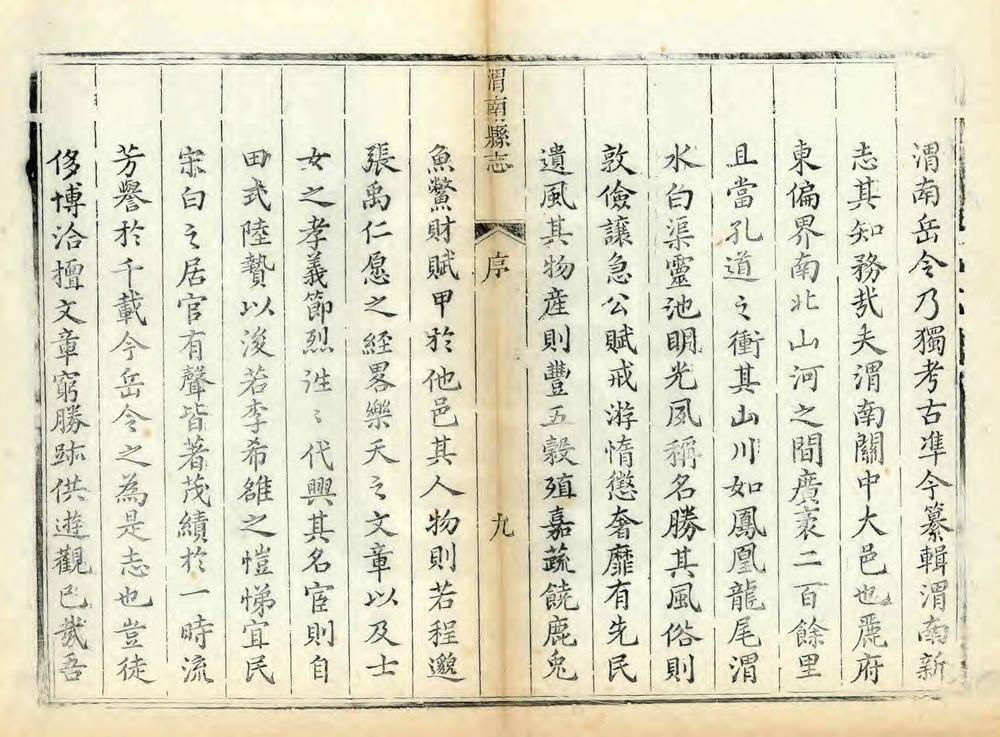 渭南岳令乃獨考古準今纂輯渭南新
志其知務哉夫渭南關中大邑也麗府
東偏界南北山河之間廣袤二百餘里
且當孔道之衝其山川如鳳凰龍尾渭
水白渠靈池明光夙稱名勝其風俗則
敦儉讓急公賦戒游惰懲奢靡有先民
遺風其物産則豐五穀殖嘉蔬饒鹿兎
渭南縣志
序
九
魚鱉財賦甲於他邑其人物則若程邈
張禹仁愿之經畧樂天之文章以及士
女之孝義節烈誰〻代興其名宦則自
田式陸贄以浚若李希雒之愷悌宜民
宋白之居官有聲皆著茂績於一時流
芳譽於千載今岳令之為是志也豈徒
侈博洽擅文章窮勝跡供遊觀已哉吾